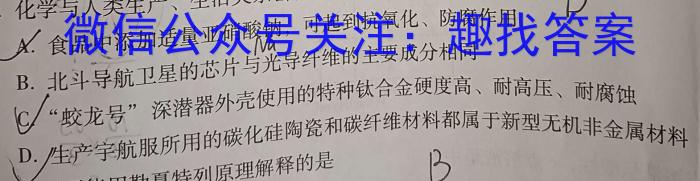 化学与人类生产、生活
A. 食品中添加适量亚硝酸钠，可起到抗氧化、防腐作用
微信公众号关注：趣找答案
Na
B. 北斗导航卫星的芯片与光导纤维的主要成分相同
C. “蛟龙号”深潜器外壳使用的特种钛合金硬度高、耐高压、耐腐蚀
D. 生产宇航服所用的碳化硅陶瓷和碳纤维材料都属于新型无机非金属材料
勒夏特列原理解释的是
B